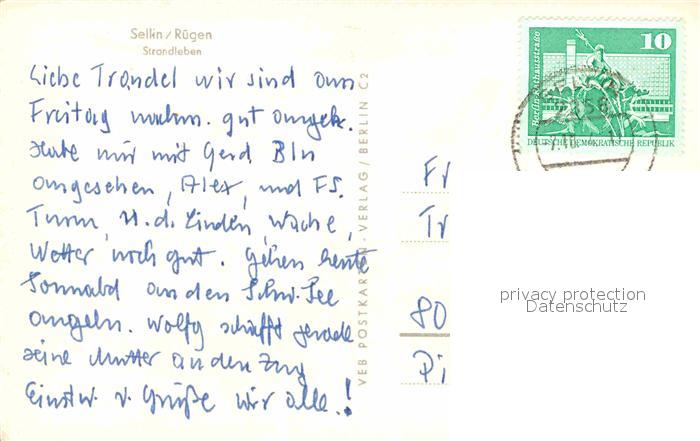 Sellin/Rügen
Strandleben
Liebe Trandel wir sind am
Freitag nachm. gut angek.
Habe mir mit Gerd Bln
angesehen, Alex, und FS.
Turm, U. d. Linden, Wache,
Wetter noch gut. Gehen heute
Sonnabd an den Schw. See
angeln. Wolfg schafft gerade
seine Mutter an den Zug
Einstw. v. Grüße wir alle.!
VEB POSTKARTEN-VERLAG/BERLIN C2
Berlin, Rathausstraße
10
DEUTSCHE DEMOKRATISCHE REPUBLIK
Fr
Tr
80
Di
privacy protection
Datenschutz